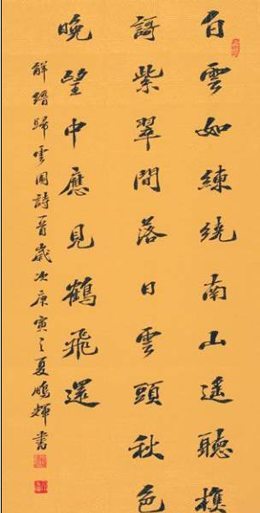 白雲如練繞南山遙聽樵
謌紫翠間落日雲頭秋色
晩望中應見鶴飛還
解縉歸雲圖詩一首歲次庚寅之夏鵬輝書